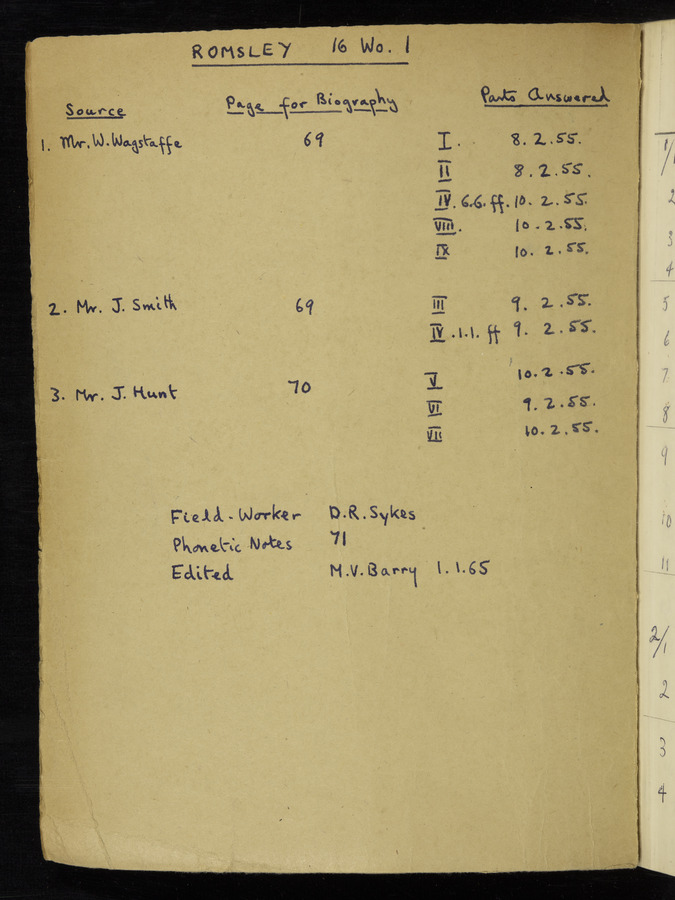 ROMSLEY 16 Wo. 1
Source Page for Biography Parts Answered
1. Mr. W. Wagstaffe 69 I. 8.2.55.
II 8.2.55.
IV. 6.6. ff. 10. 2.55.
VIII. 10.2.55.
IX 10. 2.55.
2. Mr. J. Smith 69 III 9. 2.55.
IV .1.1. ff 9. 2.55.
3. Mr. J. Hunt 70 V 10.2.55.
VI 9.2.55.
VII 10.2.55.
Field-Worker D.R. Sykes
Phonetic Notes 71
Edited M.V. Barry 1.1.65
2
3
4
5
6
7
8
9
10
11
2/1
2
3
4